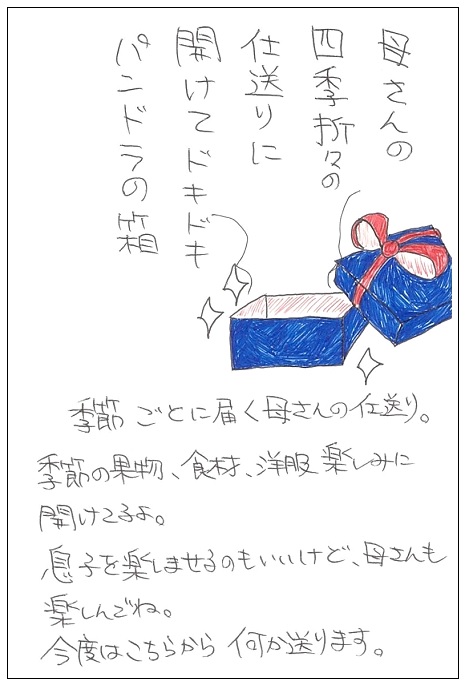 母さんの
四季折々の
仕送りに
開けてドキドキ
パンドラの箱
季節ごとに届く母さんの仕送り。
季節の果物、食材、洋服楽しみに
開けてるよ。
息子を楽しませるのもいいけど、母さんも
楽しんでね。
今度はこちらから何か送ります。